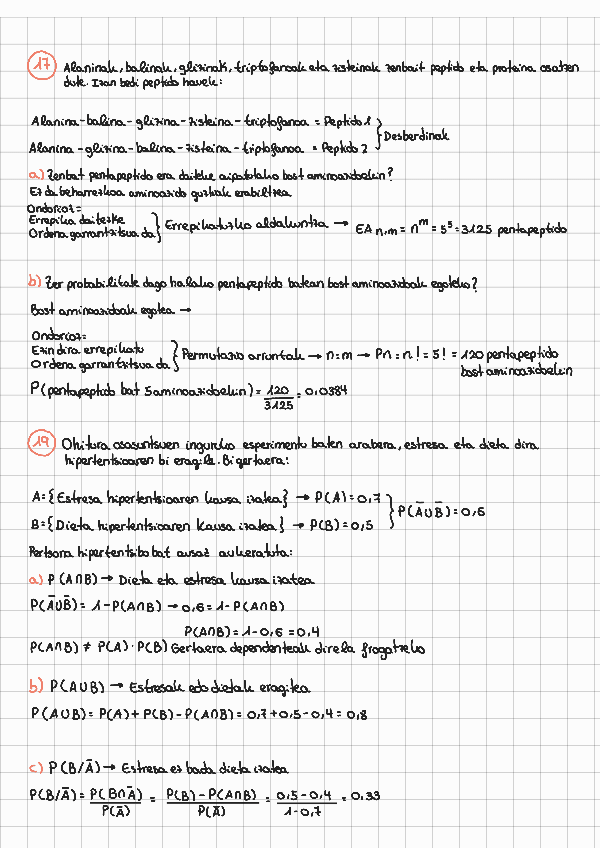 17 Alaninak, balinak, glizinak, triptofanoak eta zisteinak zenbait peptido eta proteina osatzen
dute. Izan bedi peptido hauek:
Alanina-balina-glizina-zisteina-triptofanoa = Peptido 1
Alanina-glizina-balina-zisteina-triptofanoa = Peptido 2
Desberdinak
a) Zenbat pentapeptido era daitezke aipatutako bost aminoazidoekin?
Ez da beharrezkoa aminoazido guztiak erabiltzea.
Ondorioz=
Errepika daitezke
Ordena garrantzitsua da
Errepikatuzko aldakuntza → EA n,m = n^m = 5^5 = 3125 pentapeptido
b) Zer probabilitate dago halako pentapeptido batean bost aminoazidoak egoteko?
Bost aminoazidoak egotea →
Ondorioz=
Ezin dira errepikatu
Ordena garrantzitsua da
Permutazio arruntak → n=m → Pn = n! = 5! = 120 pentapeptido
bost aminoazidoekin
P(pentapeptido bat 5 aminoazidoekin) = 120/3125 = 0,0384
19 Ohitura osasuntsuen inguruko esperimentu baten arabera, estresa eta dieta dira
hipertentsioaren bi eragile. Bi gertaera:
A={Estresa hipertentsioaren kausa izatea} → P(A)=0,7
B={Dieta hipertentsioaren kausa izatea} → P(B)=0,5
P(A̅∪B̅)=0,6
Pertsona hipertentsibo bat ausaz aukeratuta:
a) P(A∩B) → Dieta eta estresa kausa izatea
P(A̅∪B̅)= 1-P(A∩B) → 0,6=1-P(A∩B)
P(A∩B)=1-0,6=0,4
P(A∩B) ≠ P(A)·P(B) Gertaera dependenteak direla frogatzeko
b) P(A∪B) → Estresak edo dietak eragitea
P(A∪B)= P(A)+P(B)-P(A∩B)=0,7+0,5-0,4=0,8
c) P(B/A̅) → Estresa ez bada dieta izatea
P(B/A̅)= P(B∩A̅)/P(A̅) = P(B)-P(A∩B)/P(A̅) = 0,5-0,4/1-0,7 = 0,33